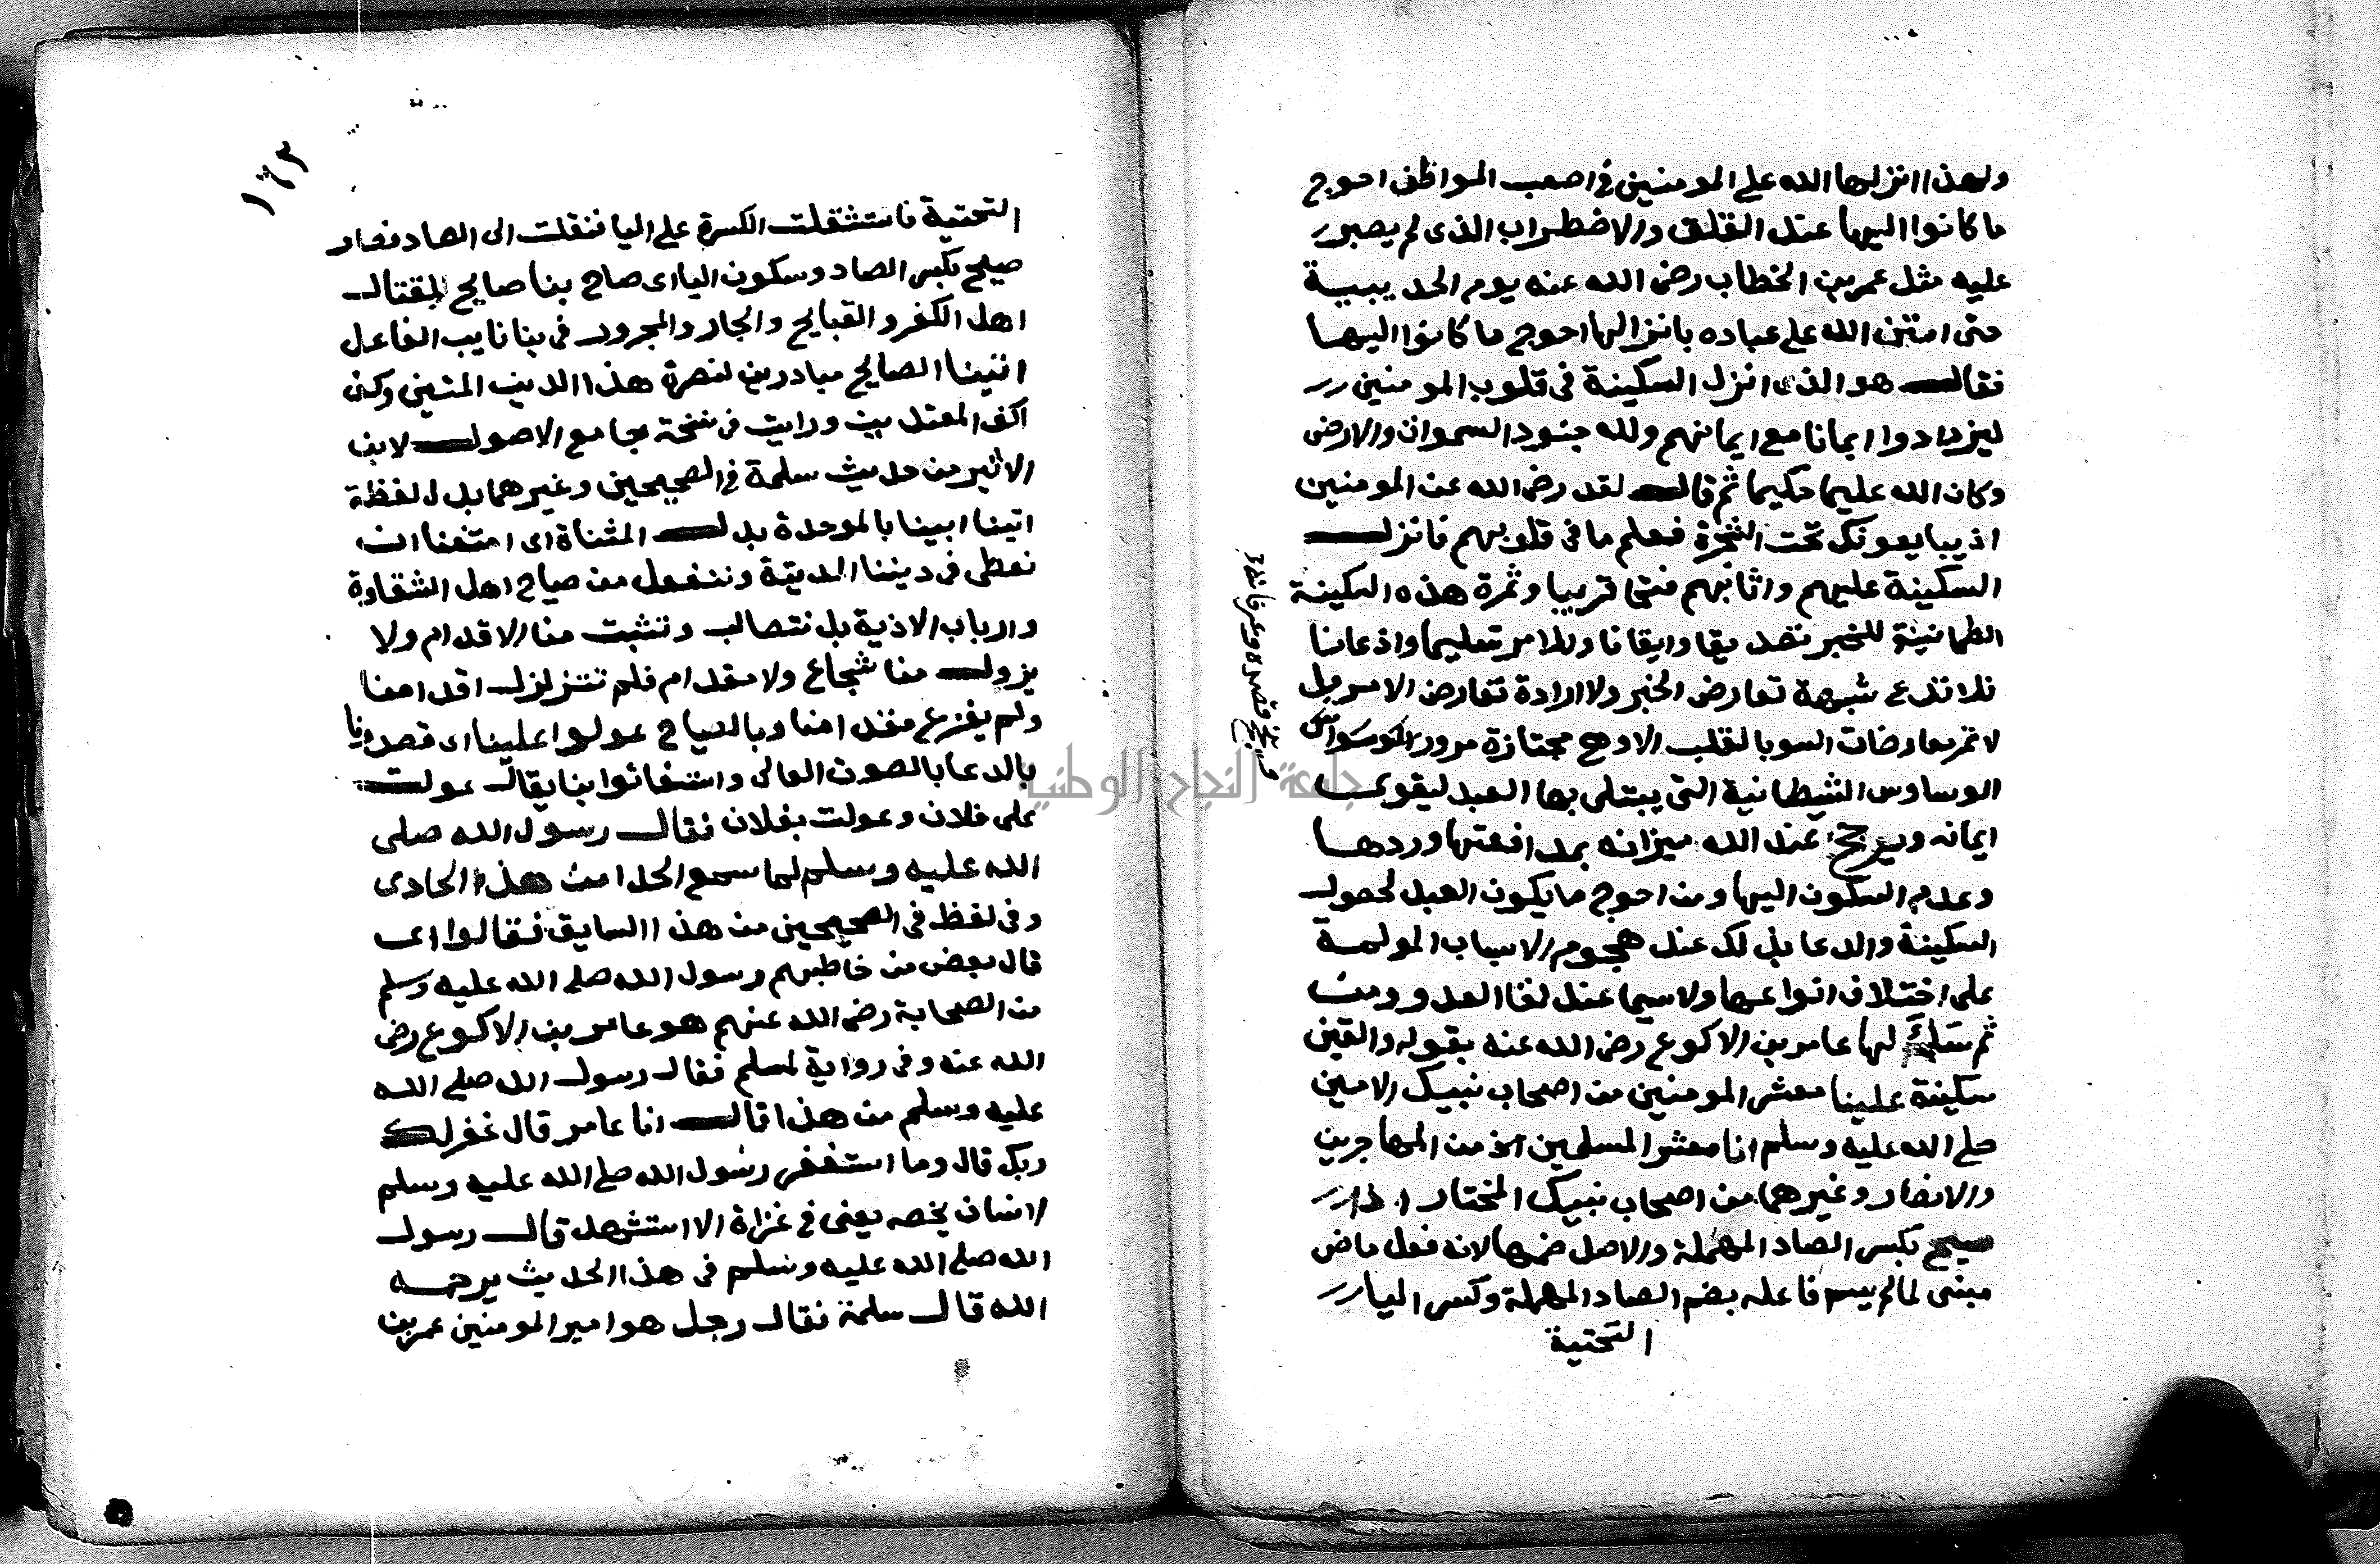 ولهذا انزلها الله على المومنين في اصعب المواطن احوج
ما كانوا اليها عند القلق والاضطراب الذى لم يصبر
عليه مثل عمر بن الخطاب رضى الله عنه يوم الحديبية
حتى امتن الله على عباده بانزالها احوج ما كانوا اليها
فقال هو الذى انزل السكينة فى قلوب المومنين
ليزدادوا ايمانا مع ايمانهم ولله جنود السموات والارض
وكان الله عليما حكيما ثم قال لقد رضى الله عن المومنين
اذ يبايعونك تحت الشجرة فعلم ما فى قلوبهم فانزل
السكينة عليهم واثابهم فتحا قريبا وثمرة هذه السكينة
الطمانينة للخبر تصديقا وايقانا وللامر تسليما واذعانا
فلا تدع شبهة تعارض الخبر ولا ارادة تعارض الامر بل
لا تمر معارضات السو بالقلب الا وهي مجتازة مرور الوسواس
الوساوس الشيطانية التى يبتلى بها العبد ليقوى
ايمانه ويرجح عند الله ميزانه بمدافعتها وردها
وعدم السكون اليها ومن احوج ما يكون العبد لحصول
السكينة والدعا بذلك عند هجوم الاسباب المولمة
على اختلاف انواعها ولا سيما عند لقا العدو ومن
ثم سال لها عامر بن الاكوع رضى الله عنه بقوله والقين
سكينة علينا معشر المومنين من اصحاب نبيك الامين
صلى الله عليه وسلم انا معشر المسلمين من المهاجرين
والانصار وغيرهما من اصحاب نبيك المختار اذا
صيح بكسر الصاد المهملة والاصل ضمها لانه فعل ماض
مبنى لما لم يسم فاعله بضم الصاد المهملة وكسر اليا
التحتية
١٦٣
التحتية فاستثقلت الكسرة على اليا فنقلت الى الصاد فصار
صيح بكسر الصاد وسكون اليا اى صاح بنا صايح لقتال
اهل الكفر والقبايح والجار والمجرور فى بنا نايب الفاعل
اتينا الصايح مبادرين لنصرة هذا الدين المتين وكف
اكف المعتدين ورايت فى نسخة جامع الاصول لابن
الاثير من حديث سلمة في الصحيحين وغيرهما بدل لفظة
اتينا ابينا بالموحدة بدل المثناة اى امتنعنا ان
نعطى فى ديننا الدنية وننفعل من صياح اهل الشقاوة
وارباب الاذية بل نتصالب وتثبت منا الاقدام ولا
يزول منا شجاع ولا مقدام فلم تتزلزل اقدامنا
ولم يفزع مقدامنا وبالصياح عولوا علينا اى قصدونا
بالدعا بالصوت العالى واستغاثوا بنا يقال عولت
على فلان وعولت بفلان فقال رسول الله صلى
الله عليه وسلم لما سمع الحدا من هذا الحادى
وفى لفظ فى الصحيحين من هذا السايق فقالوا اى
قال بعض من خاطبهم رسول الله صلى الله عليه وسلم
من الصحابة رضى الله عنهم هو عامر بن الاكوع رضى
الله عنه وفى رواية لمسلم فقال رسول الله صلى الله
عليه وسلم من هذا قال انا عامر قال غفر لك
ربك قال وما استغفر رسول الله صلى الله عليه وسلم
لانسان يخصه يعنى فى غزاة الا استشهد قال رسول
الله صلى الله عليه وسلم فى هذا الحديث يرحمه
الله قال سلمة فقال رجل هو امير المومنين عمر بن
جامعة النجاح الوطنية